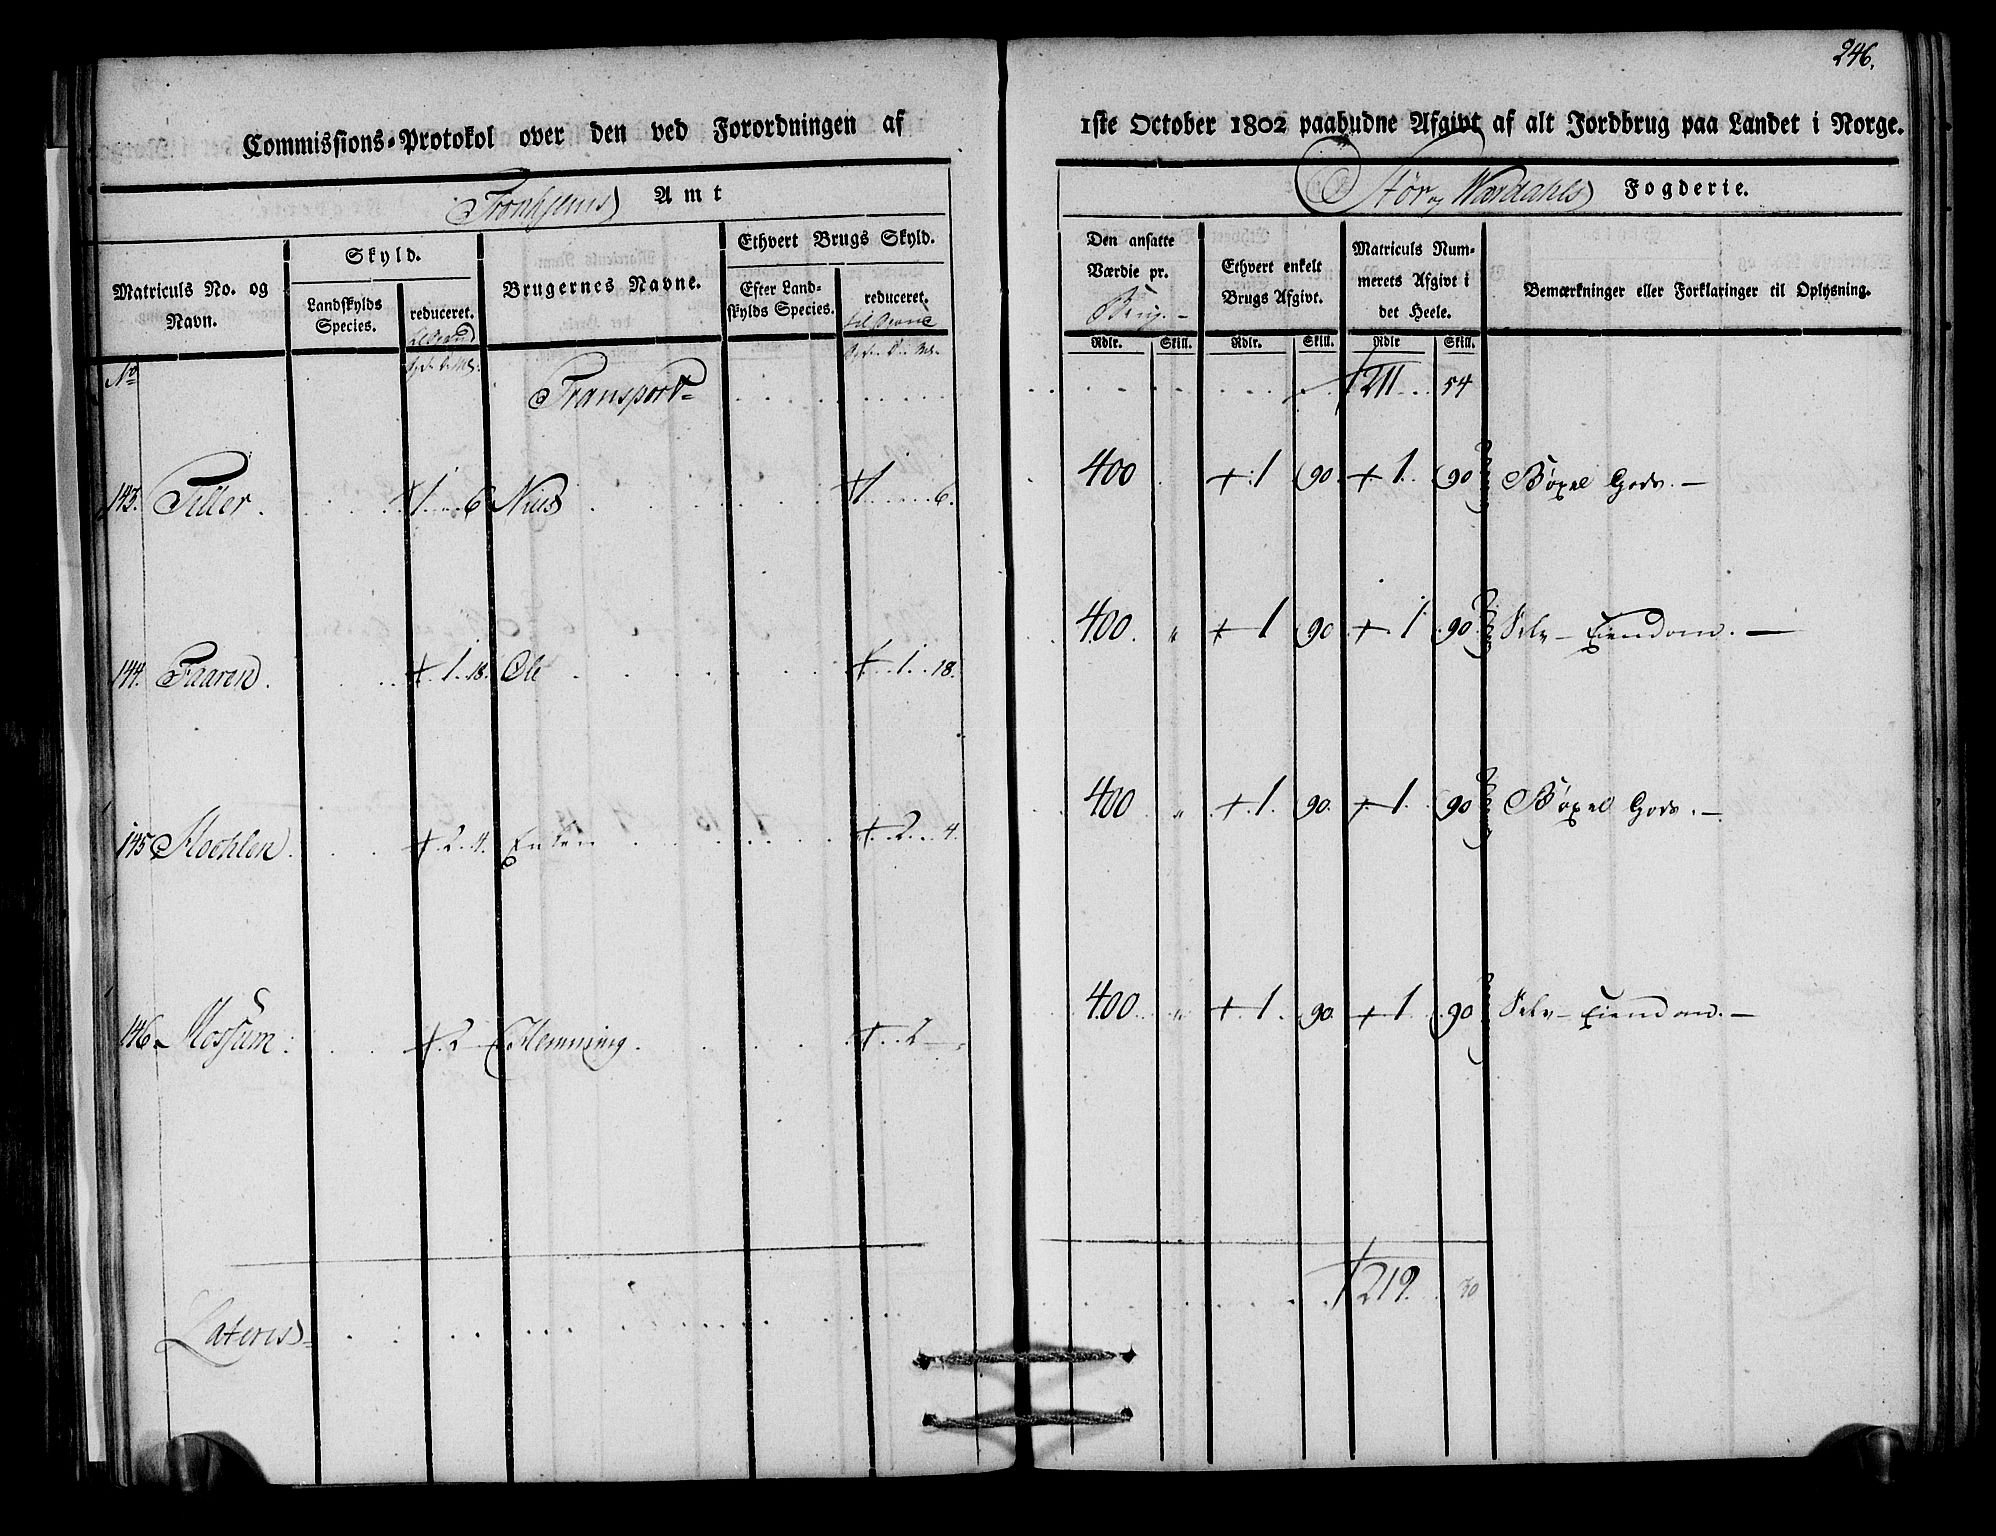 246.
Commissions-Protokol over den ved Forordningen af 1ste October 1802 paabudne Afgivt af alt Jordbrug paa Landet i Norge.
Tronhjems Amt
Stør og Wærdahls Fogderie.
Matriculs No. og Navn.
Skyld.
Landskylds Species.
reduceret.
Brugernes Navne.
Ethvert Brugs Skyld.
Efter Landskylds Species.
reduceret.
Den ansatte Værdie pr. Brug.
Ethvert enkelt Brugs Afgivt.
Matriculs Nummerets Afgivt i det Heele.
Bemærkninger eller Forklaringer til Oplysning.
Rdlr. Skill. Rdlr. Skill. Rdlr Skill.
No
Transport 211 54
143. Tiller. 1 6 Nils 1 6. 400 1 90 1 90 Bøxel Gods.
144. Faaren. 1 18. Ole 1 18. 400 " 1 90 1 90 Selv-Eiendom.
145 Moehlen. 2 4. 2 4. 400 " 1 90 1 90 Bøxel Gods.
146. Mossum. 2 Hemming. 2 400 " 1 90 1 90 Selv-Eiendom.
Lateris 219. 30